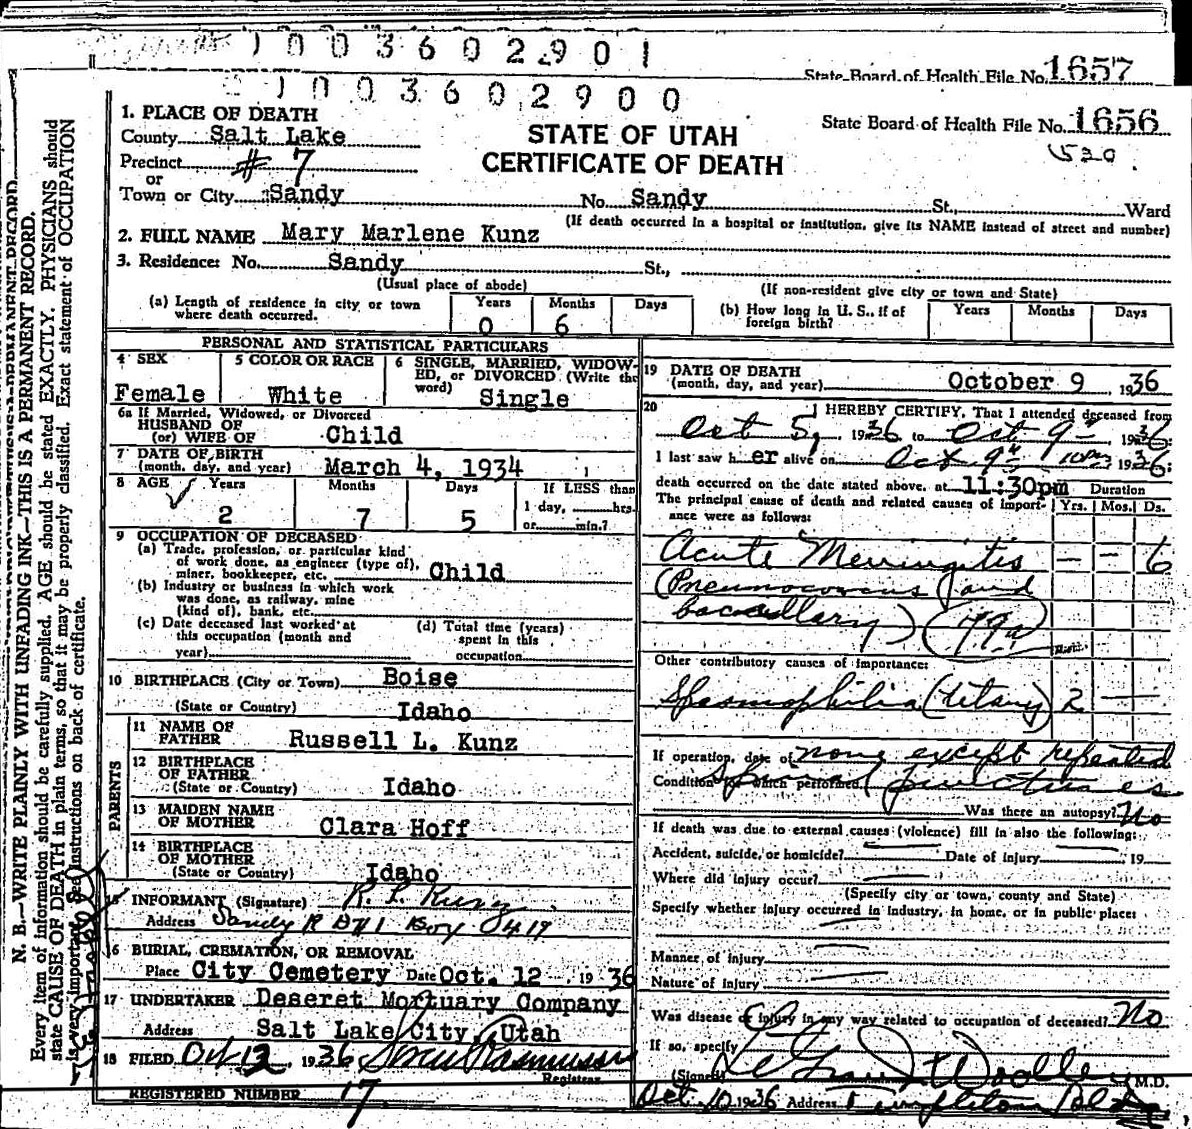 1003602901
State Board of Health File No. 1657
1003602900
State Board of Health File No. 1656
1. PLACE OF DEATH
County Salt Lake
STATE OF UTAH
CERTIFICATE OF DEATH
Precinct # 7
or
Town or City Sandy No. Sandy St., Ward
(If death occurred in a hospital or institution, give its NAME instead of street and number)
2. FULL NAME Mary Marlene Kunz
3. Residence: No. Sandy St.,
(Usual place of abode) (If non-resident give city or town and State)
(a) Length of residence in city or town where death occurred. Years 0 Months 6 Days
(b) How long in U. S., if of foreign birth? Years Months Days
PERSONAL AND STATISTICAL PARTICULARS
4 SEX Female
5 COLOR OR RACE White
6 SINGLE, MARRIED, WIDOWED, or DIVORCED (Write the word) Single
6a If Married, Widowed, or Divorced
HUSBAND OF
(or) WIFE OF Child
7 DATE OF BIRTH
(month, day, and year) March 4, 1934
8 AGE Years 2 Months 7 Days 5
If LESS than
1 day, hrs.
or min.?
9 OCCUPATION OF DECEASED
(a) Trade, profession, or particular kind
of work done, as engineer (type of),
miner, bookkeeper, etc. Child
(b) Industry or business in which work
was done, as railway, mine
(kind of), bank, etc.
(c) Date deceased last worked at
this occupation (month and
year)
(d) Total time (years)
spent in this
occupation
10 BIRTHPLACE (City or Town) Boise
(State or Country) Idaho
PARENTS
11 NAME OF
FATHER Russell L. Kunz
12 BIRTHPLACE
OF FATHER
(State or Country) Idaho
13 MAIDEN NAME
OF MOTHER Clara Hoff
14 BIRTHPLACE
OF MOTHER
(State or Country) Idaho
15 INFORMANT (Signature) R. L. Kunz
Address Sandy R D #1 Box 419
16 BURIAL, CREMATION, OR REMOVAL
Place City Cemetery Date Oct. 12 1936
17 UNDERTAKER Deseret Mortuary Company
Address Salt Lake City, Utah
18 FILED Oct 12, 1936 Rasmussen
Registrar
REGISTERED NUMBER 17
19 DATE OF DEATH
(month, day, and year) October 9, 1936
20 I HEREBY CERTIFY, That I attended deceased from
Oct 5, 1936 to Oct 9, 1936
I last saw her alive on Oct 9 10 pm 1936
death occurred on the date stated above, at 11:30pm Duration
The principal cause of death and related causes of importance were as follows: Yrs. Mos. Ds.
Acute Meningitis — — 6
(Pneumococcus and
bacillary) (79a)
Other contributory causes of importance:
Spasmophilia (tetany) 2 —
If operation, date of none except repeated
Condition for which performed spinal punctures
Was there an autopsy? No
If death was due to external causes (violence) fill in also the following:
Accident, suicide, or homicide? Date of injury 19
Where did injury occur?
(Specify city or town, county and State)
Specify whether injury occurred in industry, in home, or in public place:
Manner of injury
Nature of injury
Was disease or injury in any way related to occupation of deceased? No
If so, specify
(Signed) LeGrand Woolley M.D.
Oct 10 1936 Address Templeton Bldg.
N. B.—WRITE PLAINLY WITH UNFADING INK—THIS IS A PERMANENT RECORD.
Every item of information should be carefully supplied. AGE should be stated EXACTLY. PHYSICIANS should
state CAUSE OF DEATH in plain terms, so that it may be properly classified. Exact statement of OCCUPATION
is very important. See instructions on back of certificate.